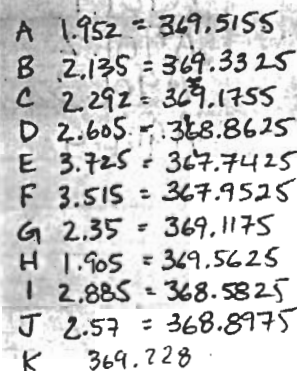 A 1.952 = 369.5155
B 2.135 = 369.3325
C 2.292 = 369.1755
D 2.605 = 368.8625
E 3.725 = 367.7425
F 3.515 = 367.9525
G 2.35 = 369.1175
H 1.905 = 369.5625
I 2.885 = 368.5825
J 2.57 = 368.8975
K 369.228